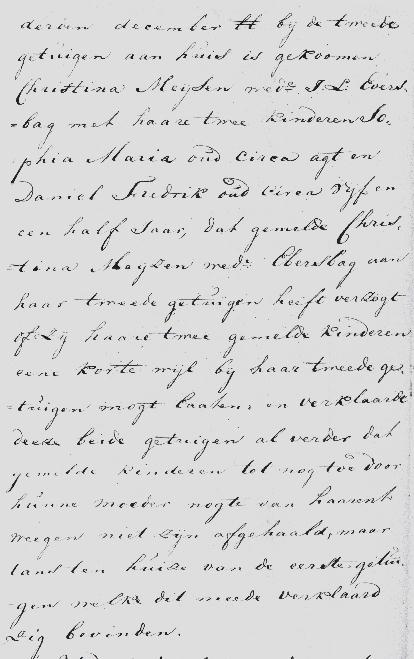 derien december ll by de tweede
getuigen aan huis is gekoomen
Christina Meysen wed:e J: L: Evers-
-bag met haare twee kinderen So-
phia Maria oud circa agt en
Daniel Fredrik oud circa vyf en
een half Jaar, dat gemelde Chris-
-tina Meyzen wed:e Eberslag aan
haar tweede getuigen heeft verzogt
of zy haare twee gemelde kinderen
eene korte wyl by haar tweede ge-
-tuigen mogt laaten; en verklaarde
deeze beide getuigen al verder dat
gemelde kinderen tot nog toe door
hunne moeder nogte van haarent
weegen niet zyn afgehaald, maar
ten huize van de eerste getui-
-gen welke dit meede verklaard
zig bevinden.